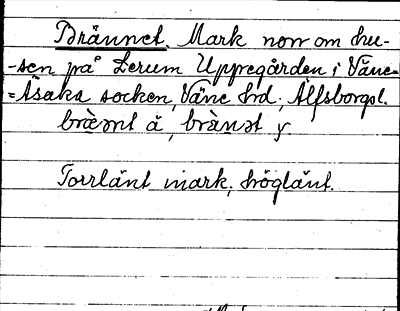 Brännet. Mark norr om hu-
-sen på Lerum Uppegården i Väne-
=Åsaka socken, Väne hrd, Älfsborgs l.
brænt å, brànət y
Torrlänt mark, höglänt.